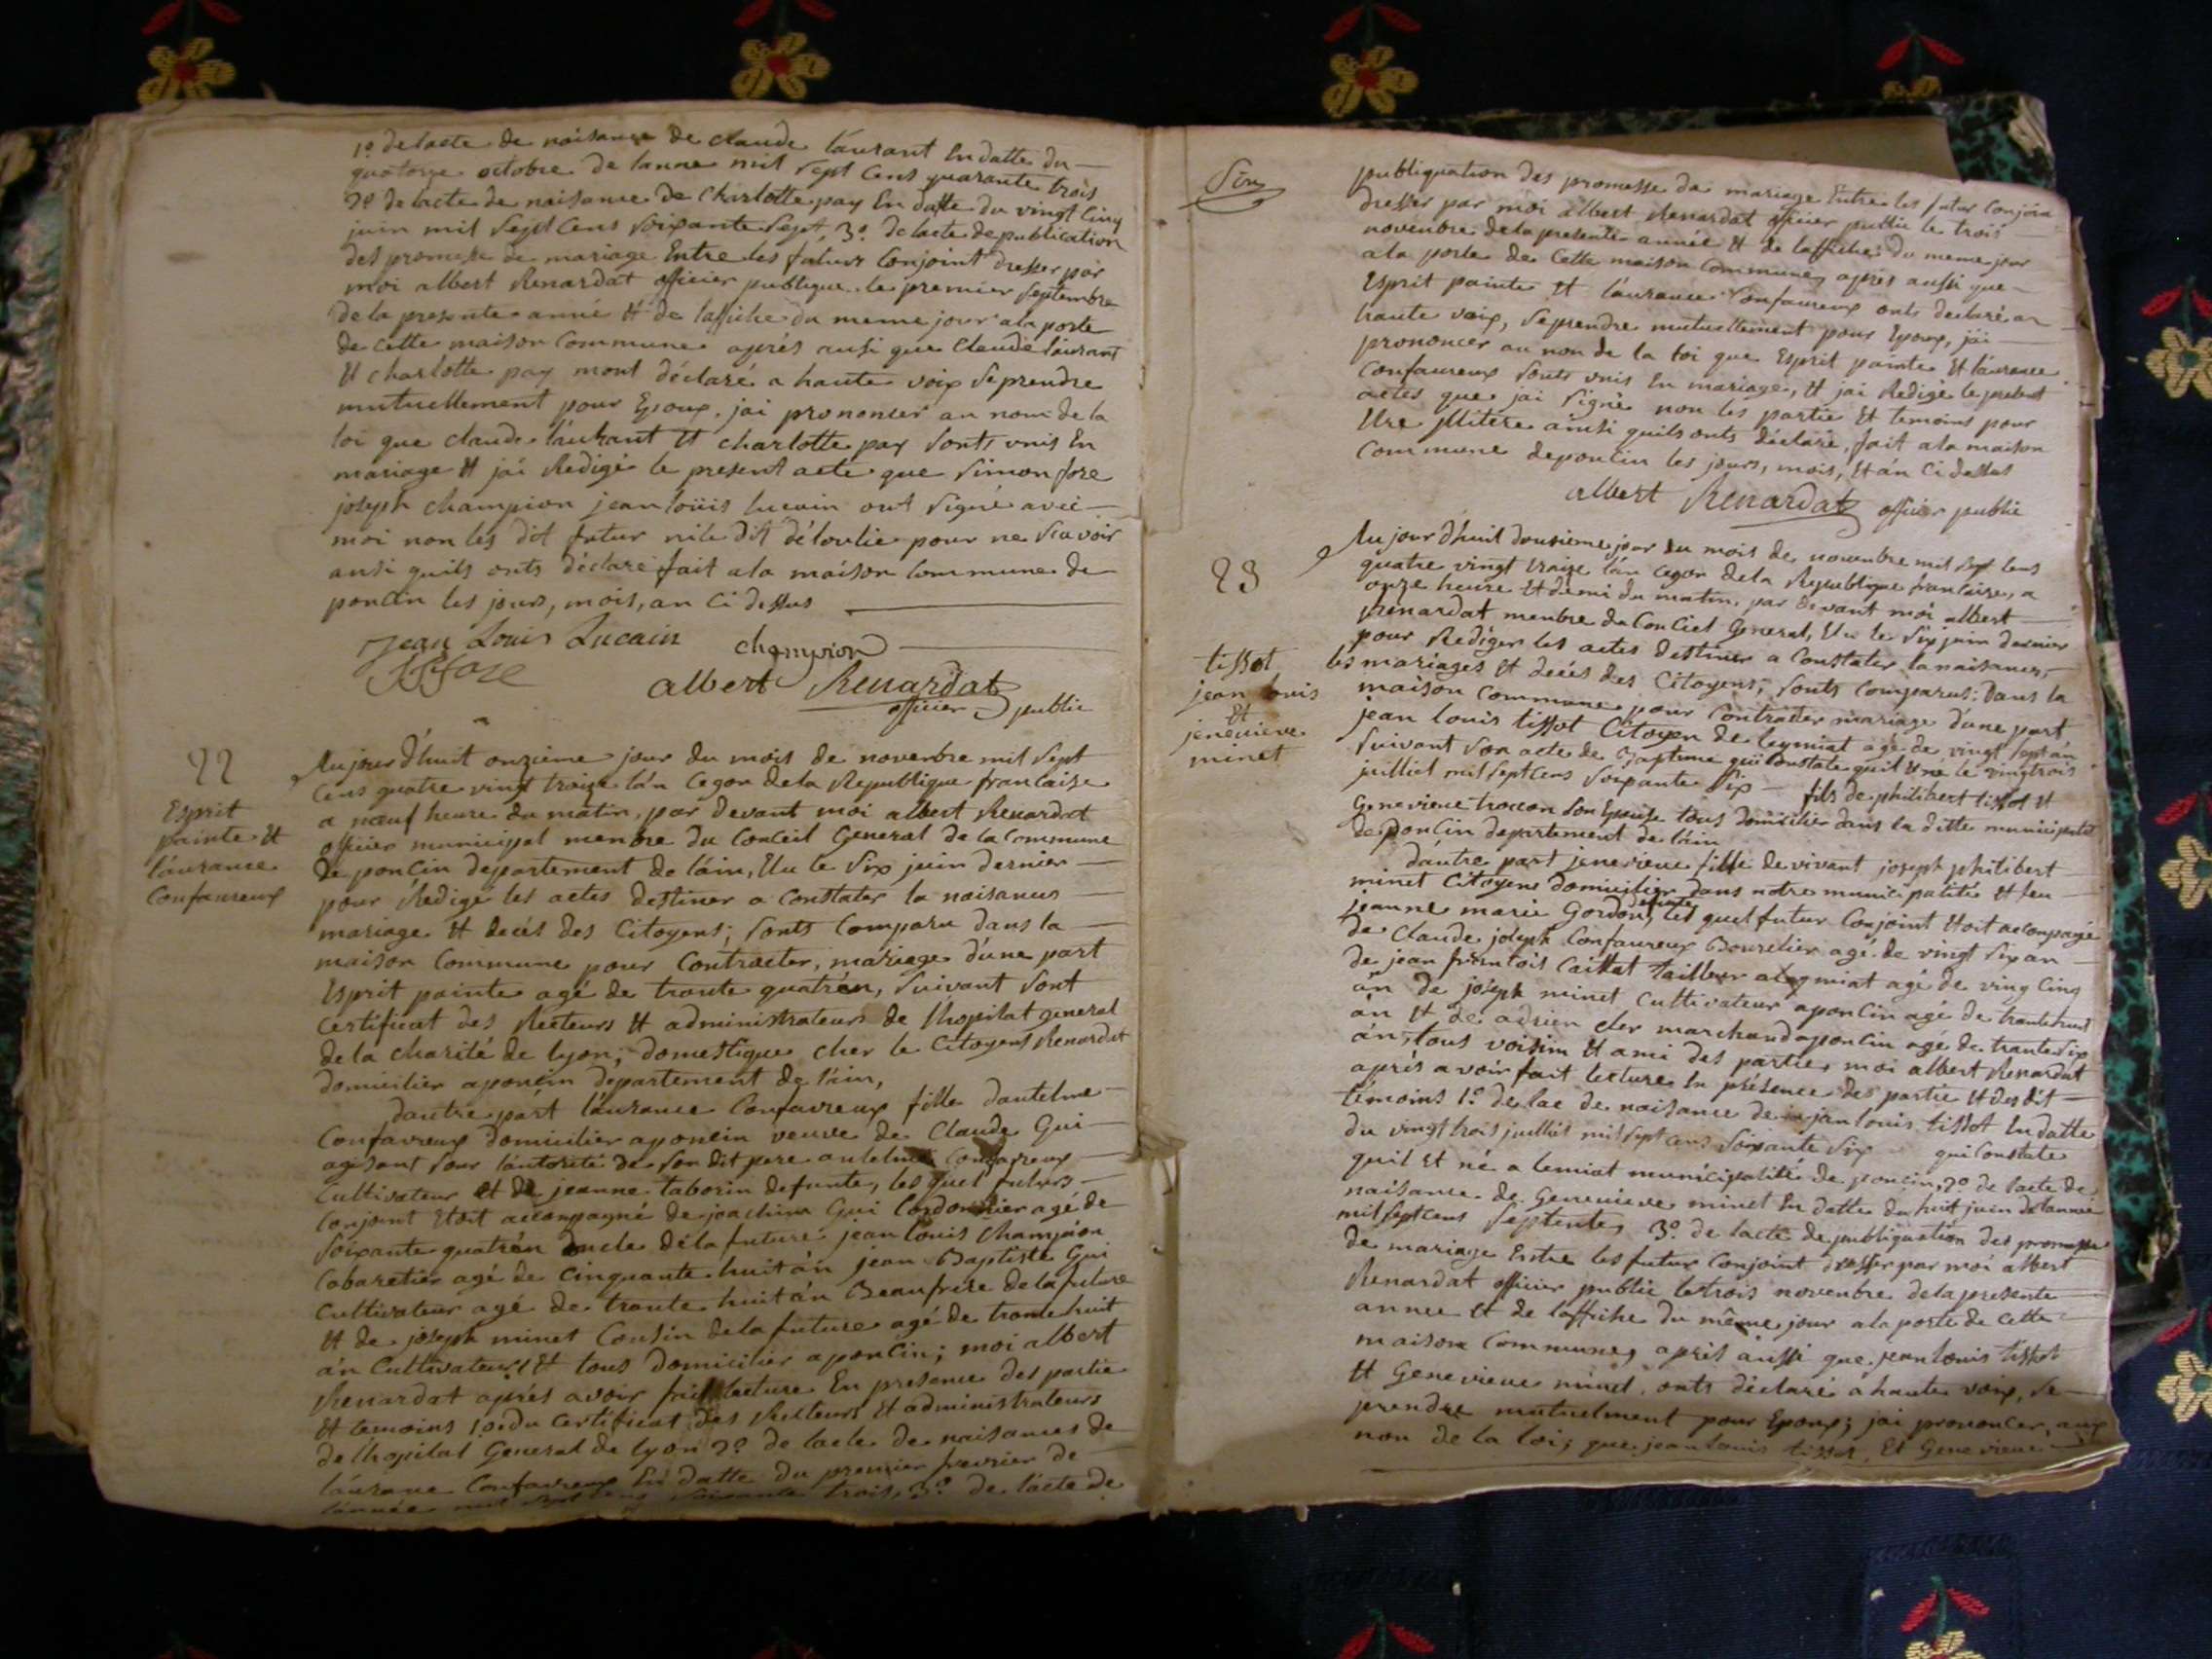 1º. de lacte de naisance de claude láurant En datte du —
quatorze octobre de lanne mil sept Cens quarante trois
2º de lacte de naisance de Charlotte pay En datte du vingt Cinq
juin mil Sept Cens Soixante Sept, 3º. de lacte de publication
des promesse de mariage Entre les futurs Conjoint dresser par
moi albert Renardat officier publique le premier Septembre
de la presente anné Et de laffiche du meme jour a la porte
de Cette maison Commune aprés ausi que Claude láurant
Et charlotte pay mont déclaré a haute voix Se prendre
mutuellement pour Epoux, jai prononcer au nom de la
loi que claude láurant Et charlotte pay Sonts unis En
mariage Et jái Redigé le present acte que Simon fore
joseph champion jean loüis lucain ont Signé avec —
moi non les dit futur pour ne Scavoir
ansi quils onts déclaré fait a la máison Commune de
poncin les jours, mois, an Ci dessus
Jean Louis Lucain champion
fore
albert Renardat
officier public
22
Esprit
painte Et
láurance
Confaureux
Aujourdhuit onzieme jour du mois de novenbre mil Sept
Cens quatre vingt traize lán Cegon de la Republique francaise
a nœuf heure du matin, par devant moi albert Renardat
officier municipal menbre du Conceil General de la Commune
de poncin departement de láin, Elu le Six juin dernier —
pour Rédigé les actes destiner a Constater la naisances —
mariage Et decés des Citoyens; Sonts Comparu dans la —
maison Commune pour Contracter, mariage dúne part
Esprit painte agé de trante quatrán, Suivant Sont
Certificat des Recteurs Et administrateurs de lhopital general
de la charité de lyon; domestique cher le Citoyens Renardat
domicilier aponcin département de láin,
dautre párt láurance Confavreux fille dantelme —
Confavreux domicilier aponcin veuve de Claude Gui —
agisant Sous láutorité de Son dit pere antelme Confavreux —
Cultivateur et de jeanne taborin defunte, les quel futurs —
Conjoint Etoit accompagné de joachim Gui Cordonnier agé de
Soixante quatrán oncle déla future jean louis Champion
Cabaretier agé de Cinquante huit án jean Baptiste Gui
Cultivateur agé de trante huit án Beaufrere de la future
Et de joseph minet Cousin de la future agé de trante huit
án Cultivateur Et tous domicilier aponcin; moi albert
Renardat aprés avoir fait lecture En presence des partie
Et temoins 1º. du Certificat des Recteurs Et administrateurs
de lhopital General de lyon 2º de lacte de naisances de
láurance Confavreux En datte du premier fevrier de
lánnée mil Sept Cens Soixante trois, 3º. de lácte de
publiquation des promesse de mariage Entre les futur Conjoin
dresser par moi albert Renardat officier public le trois
novenbre de la presente année Et de laffiche du meme jour
a la porte de Cette maison Commune, aprés ausi que —
Esprit painte Et láurance Confaureux onts declaré a
haute voix, Se prendre mutuellement pour Epoux, jái —
prononcer au nom de la loi que Esprit painte Et láurance
Confaureux Sonts unis En mariage, Et jai Redigé le present
actes que jai Signé non les partie Et temoins pour
Etre ainsi quils onts déclaré, fait a la maison
Commune deponcin les jours, mois, Et án Ci dessus
albert Renardat officier public
23
tissot
jean louis
Et
jenevieve
minet
Aujourdhuit dousieme jour du mois de novenbre mil Sept Cens
quatre vingt traize lán Cegon de la Republique francaise, a
onze heure Et demi du matin, par devant moi albert —
Renardat menbre du Conciel General, Elu le Six juin dernier
pour Rediger les actes destiner a Constater la naisances, —
les mariages Et decés des Citoyens; Sonts Comparus; dans la
maison Commune pour Contracter mariage dúne part
jean louis tissot Citoyen de leymiat agé de vingt Sept án
Suivant Son acte de Baptime qui Constate quil Et né le vingtrois
julliet mil Sept Cens Soixante Six — fils de philibert tissot Et
Genevieve Son Epouse tous domicilier dans la ditte municipalité
de poncin departement de láin
dáutre part jenevieve fille de vivant joseph philibert —
minet Citoyens domicilier dans notre municipalité Et feu —
jeanne marie Gordon, défunte les quel futur Conjoint Etoit acompagné
de Claude joseph Confaureux Bourelier agé de vingt Six an —
de jean frantois Caillat tailleur a leymiat agé de ving Cinq
án de joseph minet Cultivateur aponcin agé de trante huit
án Et de adrien cler marchand aponcin agé de trante Six
án, tous voisin Et ami des partie, moi albert Renardat
aprés avoir fait lecture En présence des partie Et des dit —
témoins 1º. de lac de naisance de jan louis tissot En datte
du vingt trois julliet mil Sept Cens Soixante Six qui Constate
quil Et né a lemiat municipalité de poncin, 2º. de lacte de
naisance de Genevieve minet En datte du huit juin de lannee
mil Sept Cens Septente, 3º. de lacte de publiquation des promesse
de mariage Entre les futur Conjoint dresser par moi albert
Renardat officier public le trois novenbre de la presente
annee Et de láffiche du même jour a la porte de Cette
maison Commune, aprés aussi que jean louis tissot
Et Genevieve minet, onts déclaré a haute voix, Se —
prendre mutuelment pour Epoux; jai prononcer, aux
non de la loi; que jean louis tissot, Et Genevieve —